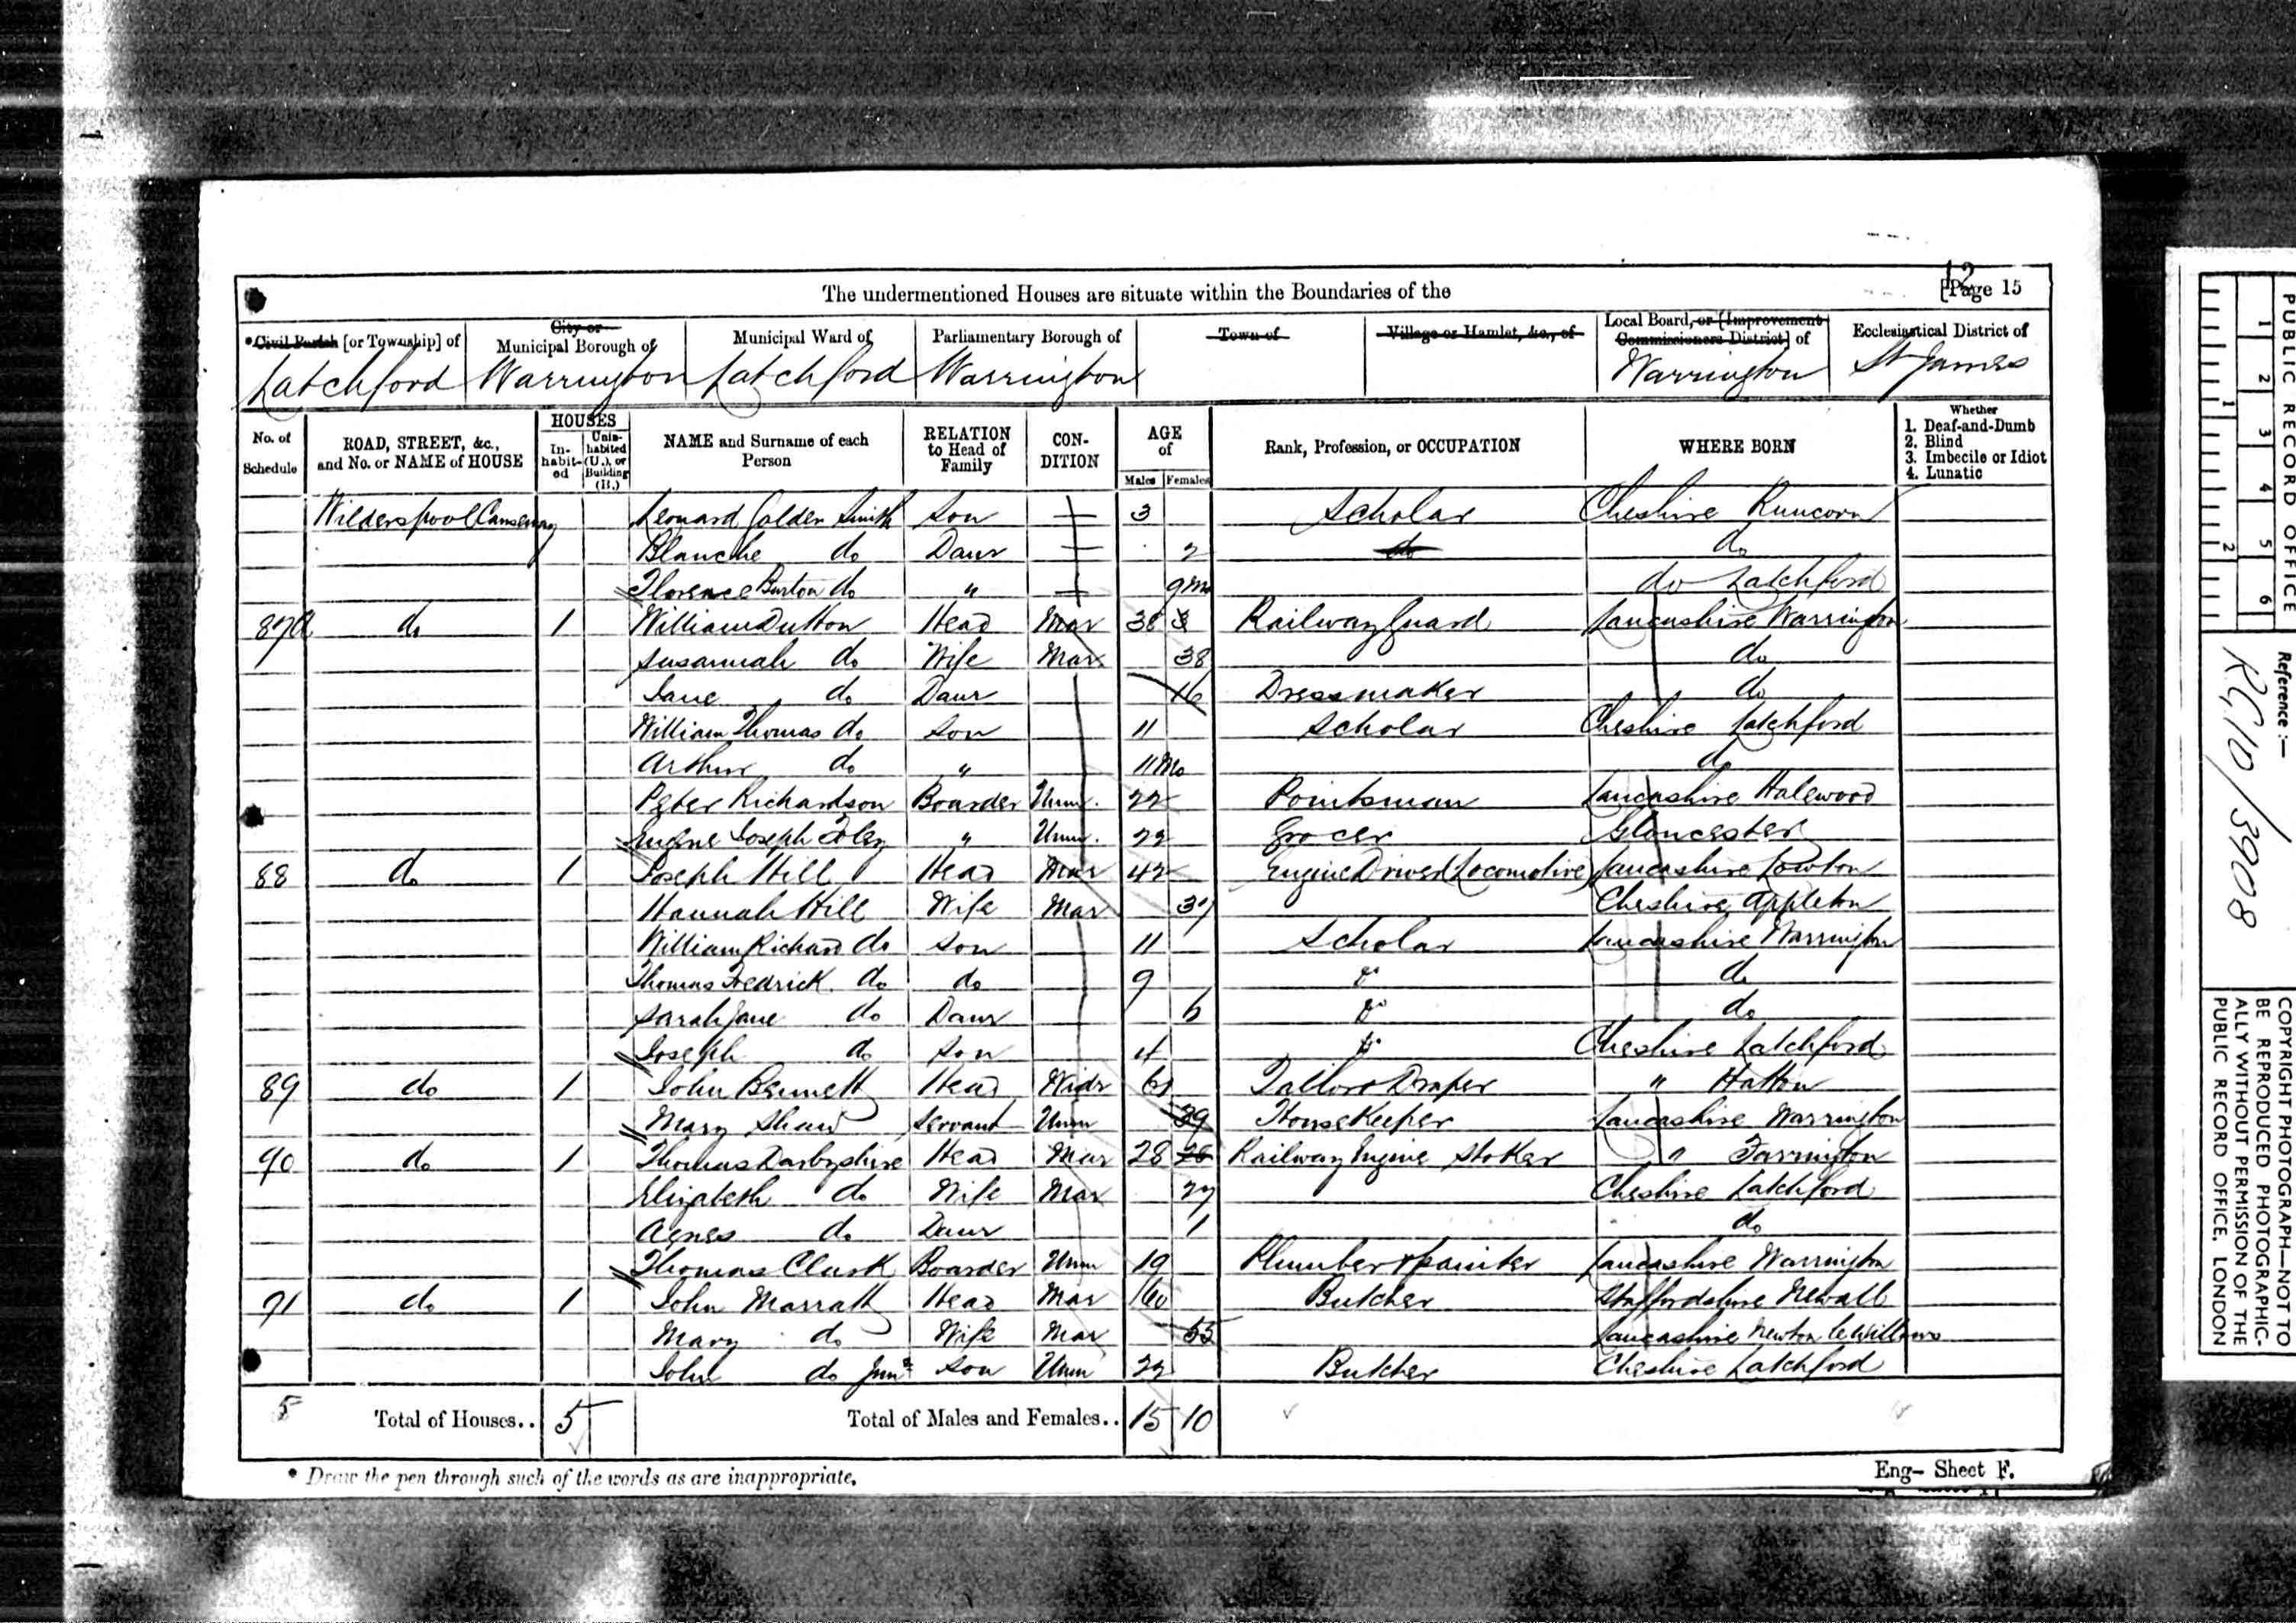 12
The undermentioned Houses are situate within the Boundaries of the [Page 15
*Civil Parish [or Township] of City or Municipal Borough of Municipal Ward of Parliamentary Borough of Town of Village or Hamlet, &c., of Local Board, or [Improvement Commissioners District] of Ecclesiastical District of
Latchford Warrington Latchford Warrington Warrington St James
No. of Schedule ROAD, STREET, &c., and No. or NAME of HOUSE HOUSES In-habit-ed Unin-habited (U.), or Building (B.) NAME and Surname of each Person RELATION to Head of Family CON-DITION AGE of Males Females Rank, Profession, or OCCUPATION WHERE BORN Whether 1. Deaf-and-Dumb 2. Blind 3. Imbecile or Idiot 4. Lunatic
Wilderspool Causeway Leonard Golden Smith Son 3 Scholar Cheshire Runcorn
Blanche do Daur 2 do do
Florence Burton do " 9 mo do Latchford
87 do 1 William Dutton Head Mar 38 Railway Guard Lancashire Warrington
Susannah do Wife Mar 38 do
Jane do Daur 16 Dressmaker do
William Thomas do Son 11 Scholar Cheshire Latchford
Arthur do " 11 Mo do
Peter Richardson Boarder Unm. 22 Pointsman Lancashire Halewood
Eugene Joseph Foley " Unm. 22 Grocer Gloucester
88 do 1 Joseph Hill Head Mar 42 Engine Driver (Locomotive) Lancashire Lowton
Hannah Hill Wife Mar 37 Cheshire Appleton
William Richard do Son 11 Scholar Lancashire Warrington
Thomas Fredrick do do 9 do do
Sarah Jane do Daur 6 do do
Joseph do Son 4 do Cheshire Latchford
89 do 1 John Bennett Head Widr 61 Tailor & Draper " Hatton
Mary Shaw Servant Unm 39 House Keeper Lancashire Warrington
90 do 1 Thomas Darbyshire Head Mar 28 Railway Engine Stoker " Farrington
Elizabeth do Wife Mar 27 Cheshire Latchford
Agnes do Daur 1 do
Thomas Clark Boarder Unm 19 Plumber & painter Lancashire Warrington
91 do 1 John Marratt Head Mar 60 Butcher Staffordshire Newall
Mary do Wife Mar 55 Lancashire Newton le Willows
John do Junr Son Unm 22 Butcher Cheshire Latchford
5 Total of Houses.. 5 Total of Males and Females.. 15 10
* Draw the pen through such of the words as are inappropriate.
Eng- Sheet F.
PUBLIC RECORD OFFICE
1 2 3 4 5 6
1 2
Reference :-
RG10/3908
COPYRIGHT PHOTOGRAPH—NOT TO BE REPRODUCED PHOTOGRAPHIC-ALLY WITHOUT PERMISSION OF THE PUBLIC RECORD OFFICE, LONDON